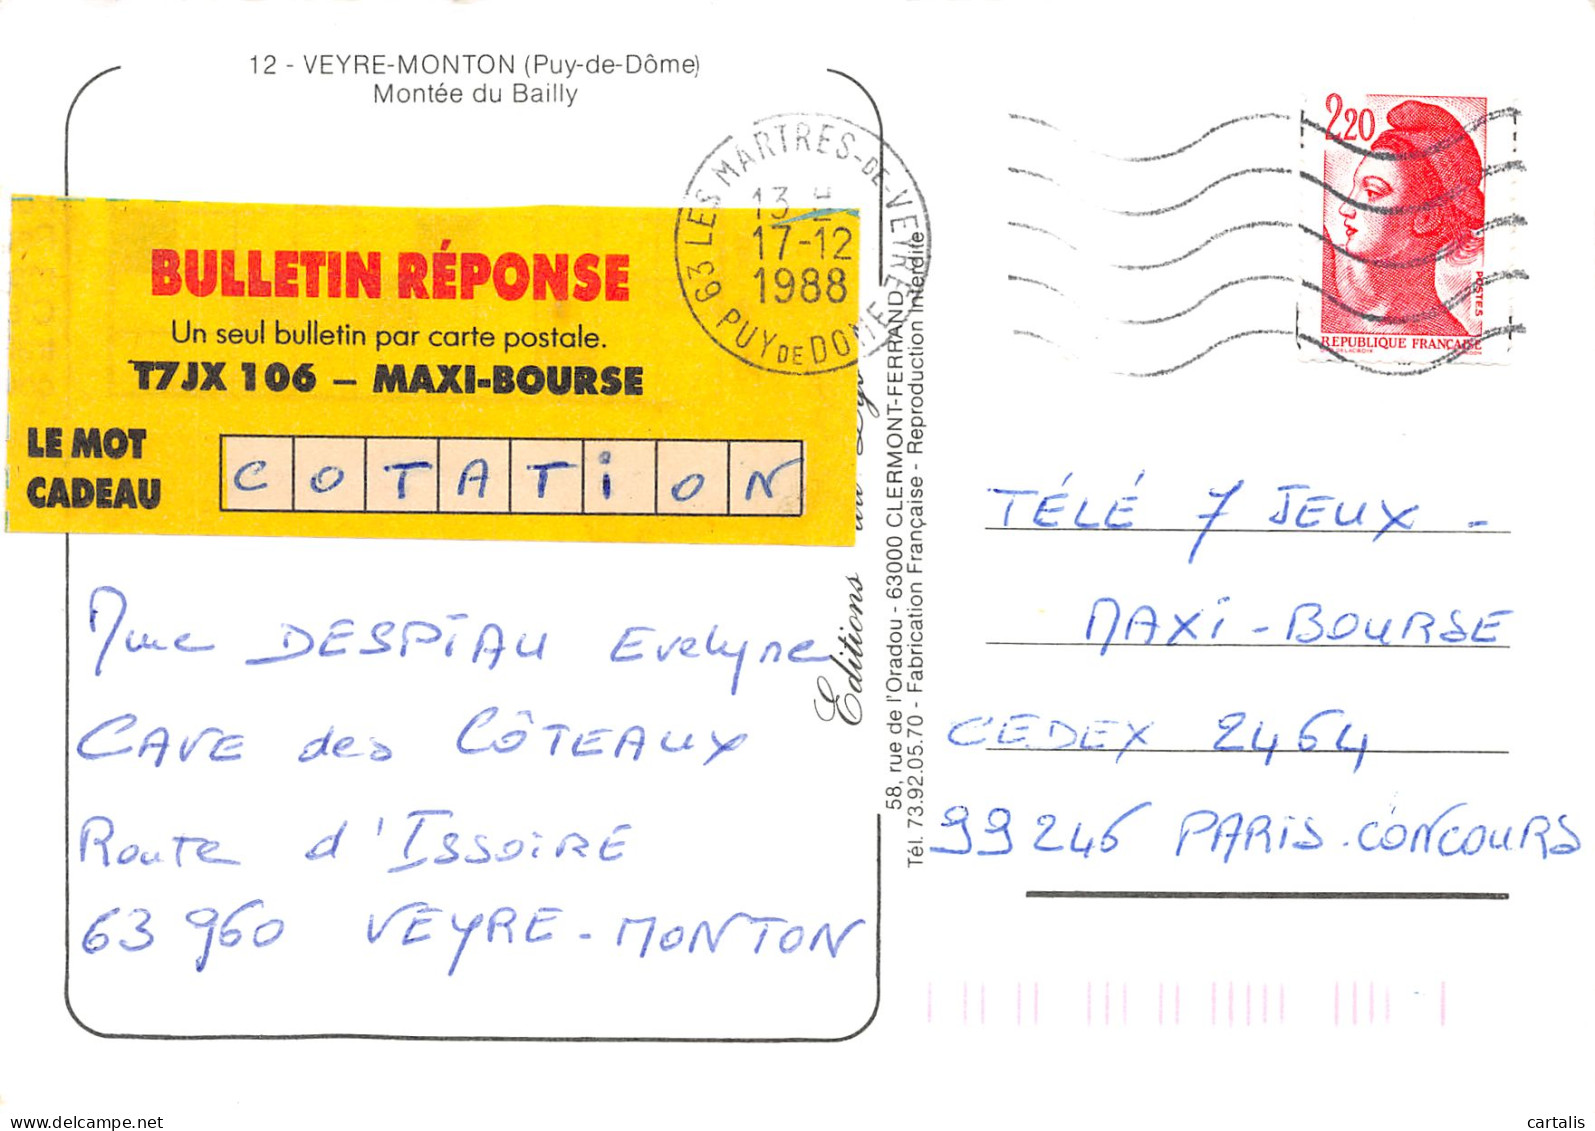 12 - VEYRE-MONTON (Puy-de-Dôme)
Montée du Bailly
63 LES MARTRES-DE-VEYRE
13 H
17-12
1988
PUY DE DOME
2,20
POSTES
REPUBLIQUE FRANÇAISE
BULLETIN RÉPONSE
Un seul bulletin par carte postale.
T7JX 106 – MAXI-BOURSE
LE MOT
CADEAU
COTATiON
Mme DESPIAU Evelyne
CAVE des CÔTEAUX
Route d'ISSOiRE
63 960 VEYRE-MONTON
Editions
58, rue de l'Oradou - 63000 CLERMONT-FERRAND
Tél. 73.92.05.70 - Fabrication Française - Reproduction Interdite
TÉLÉ 7 JEUX -
MAXi-BOURSE
CEDEX 2464
99246 PARIS.CONCOURS
cartalis
www.delcampe.net